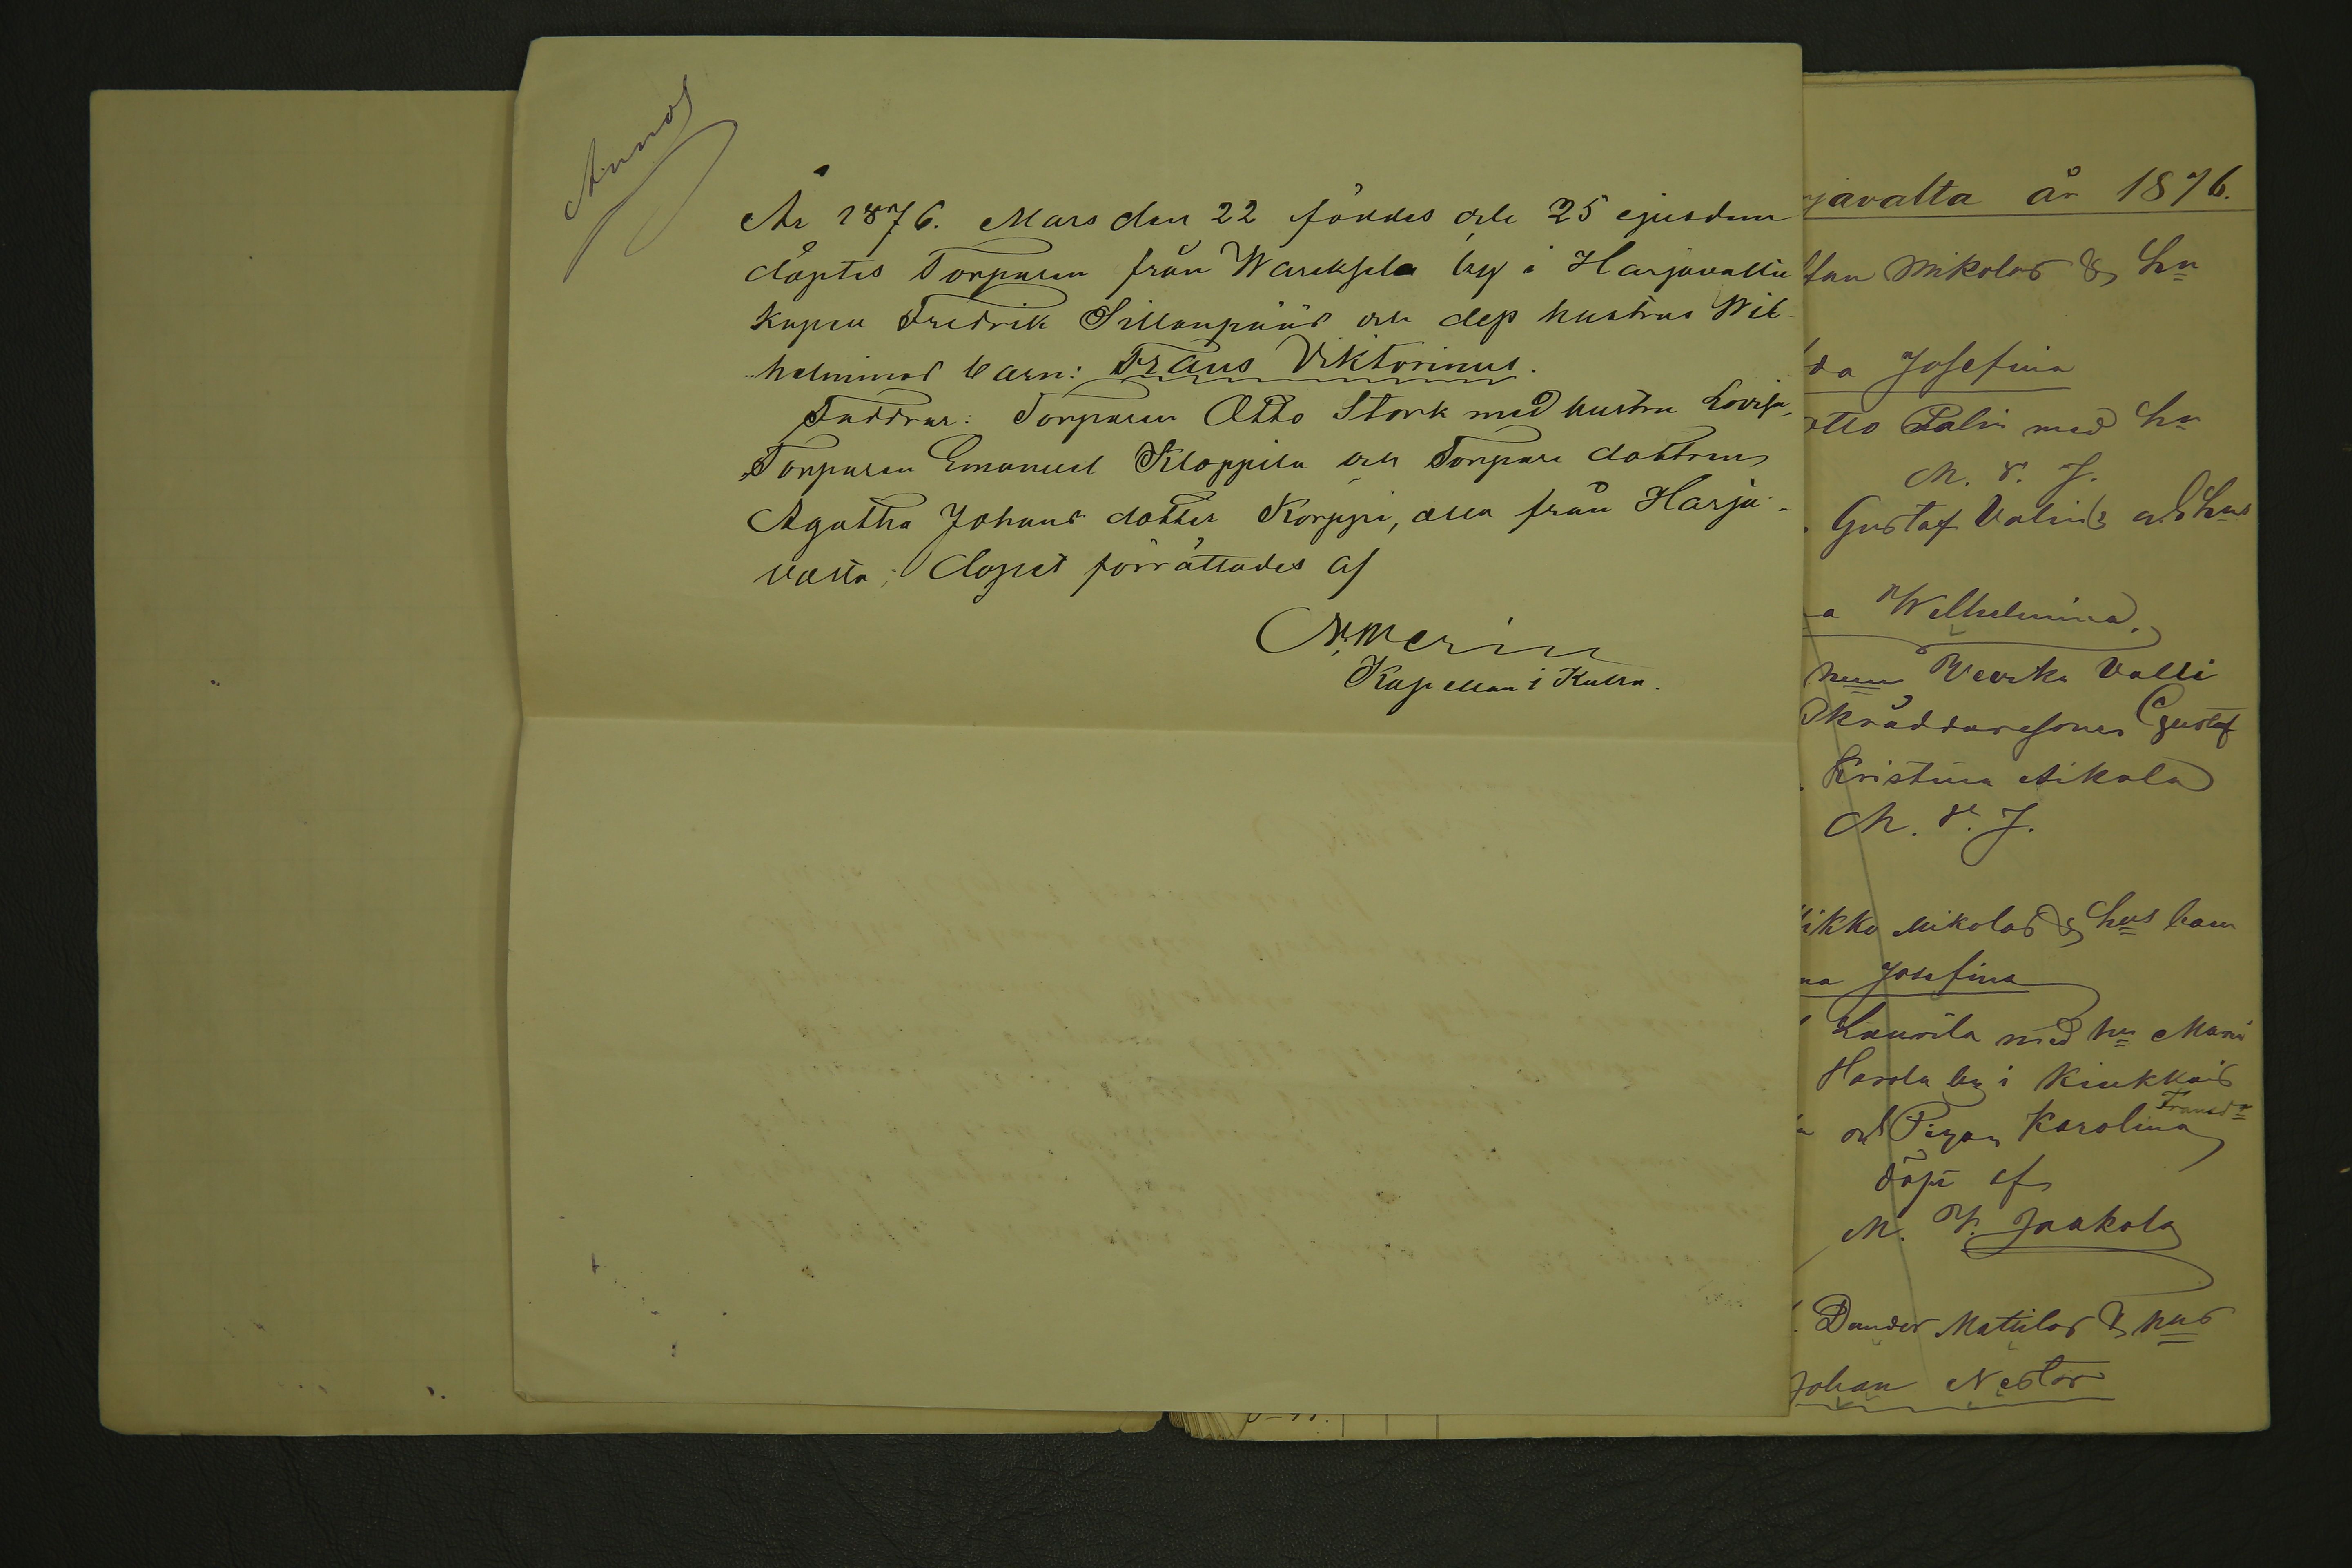 År 1876. Mars den 22 föddes och 25 ejusdem
döptes Torparen från Warcksela by i Harjavalta
kapell Fredrik Sillanpääs och dess hustrus Wil-
helminas barn: Frans Viktorinus.
Faddrar: Torparen Otto Stark med hustru Lovisa,
Torparen Emanuel Kloppila och Torpare dottren
Agatha Johans dotter Korppi, alla från Harja-
valta; Dopet förrättades af
N. Merin
Kapellan i Kulla.
javalta år 1876.
Mikolas & hu
da Josefina
Otto Palin med hu
M. V. J.
Gustaf Valins och hus
a Wilhelmina
Valli
Skräddaresonen Gustaf
Kristina Aikala
M. V. J.
ikko Mikolas & hus barn
na Josefina
Laurila med hu Maria
Harola by i Kiukkais
och Pigan Karolina Fransdr
döpt af
M. V. Jaakola
Dander Mattilas & hus
Johan Nestor